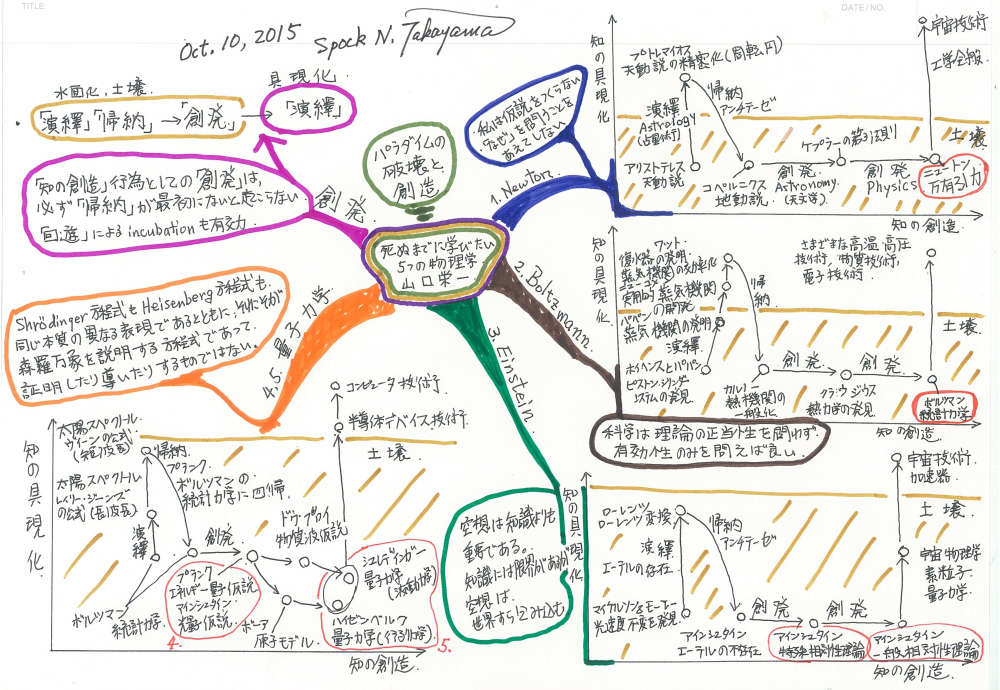 TITLE
DATE/NO.
Oct. 10, 2015 Spock N. Takayama
水面化、土壌
具現化
「演繹」「帰納」→「創発」
「演繹」
「知の創造」行為としての「創発」は、
必ず「帰納」が最初にないと起こらない
によるincubationも有効
創発
パラダイムの
破壊と
創造
死ぬまでに学びたい
5つの物理学
山口栄一
1. Newton
「私は仮説をつくらない
"なぜ"を問うことを
あえてしない
2. Boltzmann
科学は理論の正当性を問わず
有効性のみを問えば良い
3. Einstein
空想は知識よりも
重要である。
知識には限界があるが
空想は
世界すら包み込む
4.5 量子力学
Shrödinger方程式もHeisenberg方程式も、
同じ本質の異なる表現であるとともに、それが
森羅万象を説明する方程式であって、
証明したり導いたりするものではない。
知の具現化
プトレマイオス
天動説の精密化(周転円)
演繹
Astrology
(占星術)
帰納
アンチテーゼ
アリストテレス
天動説
コペルニクス
地動説
創発
Astronomy
(天文学)
ケプラーの第3法則
創発
Physics
ニュートン
万有引力
土壌
宇宙技術
工学全般
知の創造
知の具現化
ワット
復水器の発明
蒸気機関の効率化
ニューコメン
実用的蒸気機関
の開発
パパン
蒸気機関の発明
演繹
ホイヘンスとパパン
ピストン・シリンダ
システムの発見
帰納
カルノー
熱機関の
一般化
創発
クラウジウス
熱力学の発見
創発
ボルツマン
統計力学
土壌
さまざまな高温高圧
技術、物質技術、
電子技術
知の創造
知の具現化
ローレンツ
ローレンツ変換
演繹
エーテルの存在
マイケルソン&モーレー
光速度不変を発見
帰納
アンチテーゼ
アインシュタイン
エーテルの不存在
創発
アインシュタイン
特殊相対性理論
創発
アインシュタイン
一般相対性理論
宇宙物理学
素粒子
量子力学
土壌
宇宙技術
加速器
知の創造
知の具現化
太陽スペクトル
ヴィーンの公式
(短波長)
太陽スペクトル
レイリー・ジーンズ
の公式(長波長)
演繹
ボルツマン
統計力学
帰納
プランク
ボルツマンの
統計力学に回帰
創発
プランク
エネルギー量子仮説
アインシュタイン
光量子仮説
4.
ドゥ・ブロイ
物質波仮説
ボーア
原子モデル
シュレディンガー
量子力学
(波動力学)
ハイゼンベルク
量子力学(行列力学)
5.
土壌
半導体デバイス技術
コンピュータ技術
知の創造